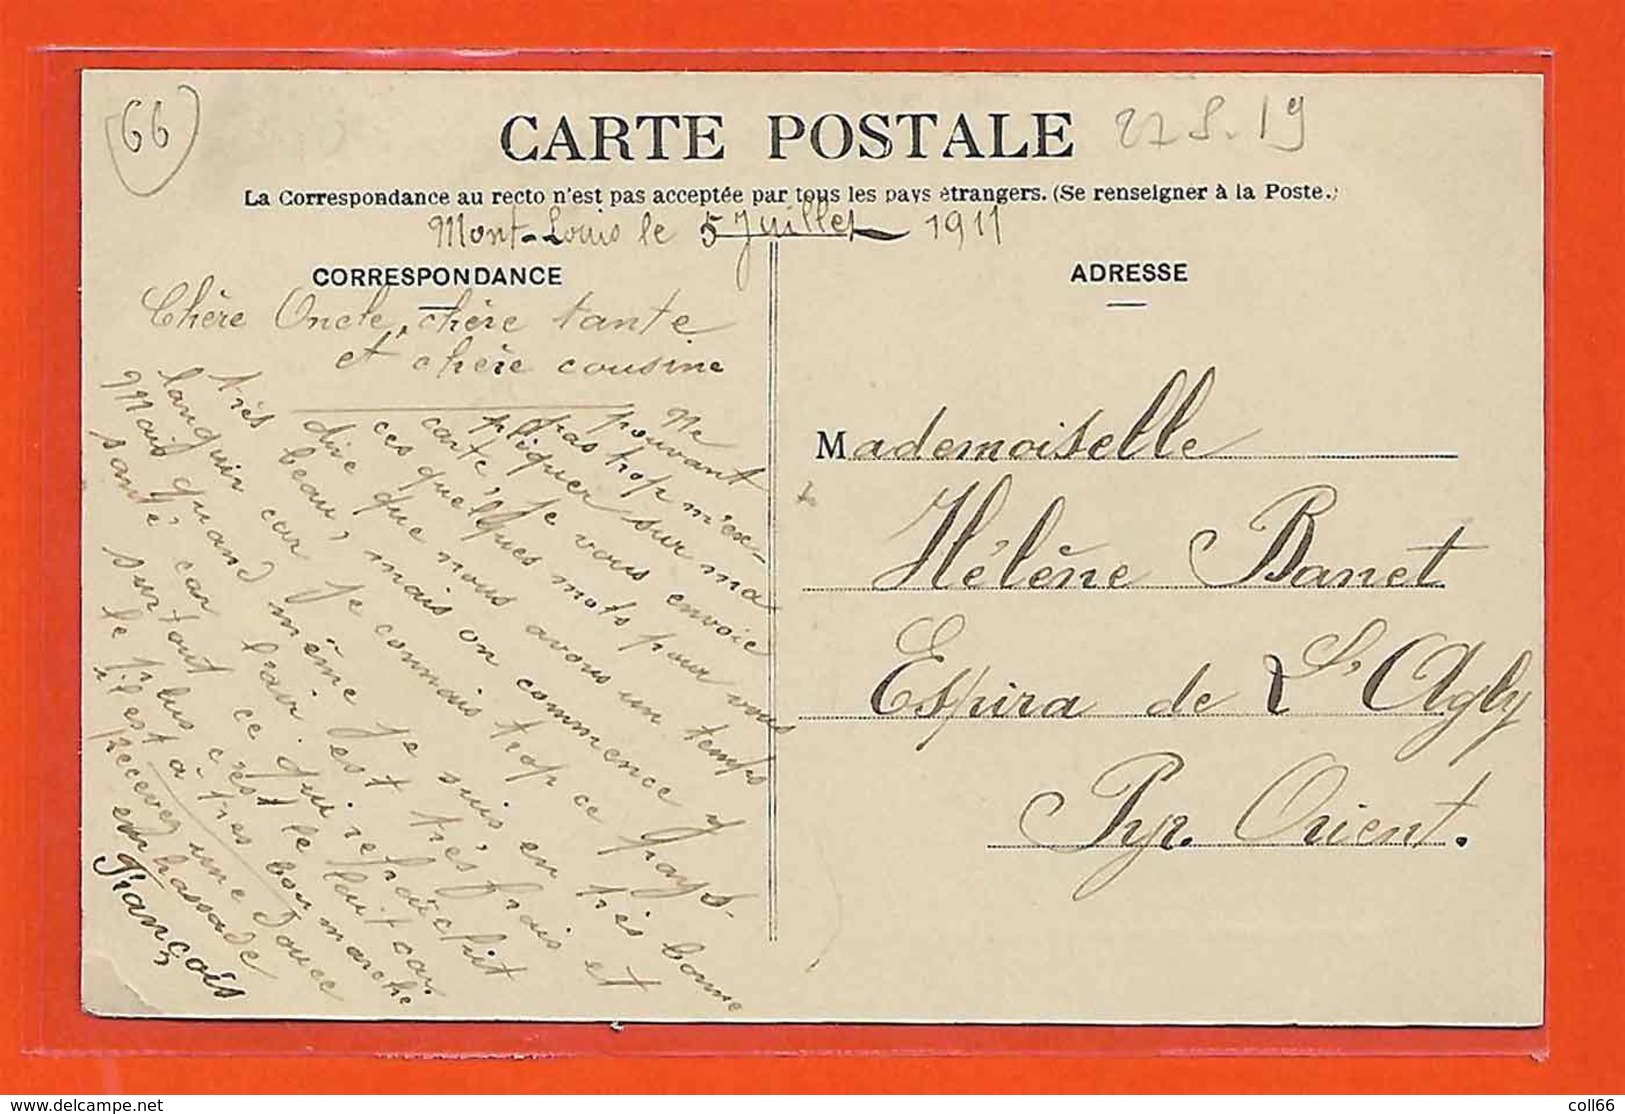 66
CARTE POSTALE
27 S. 19
La Correspondance au recto n'est pas acceptée par tous les pays étrangers. (Se renseigner à la Poste.)
Mont-Louis le 5 Juillet 1911
CORRESPONDANCE
Chère Oncle, chère tante
et chère cousine
Ne
pouvant
pas trop m'ex-
pliquer sur ma
carte, je vous envoie
ces quelques mots pour vous
dire que nous avons un temps
très beau, mais on commence y
languir car je connais trop ce pays.
Mais quand même je suis en très bonne
santé, car l'air est très frais et
surtout ce qui refraichit
le plus c'est le lait car
il est à très bon marché
Recevez une douce
embrassade
François
ADRESSE
Mademoiselle
Hélène Banet
Espira de L'Agly
Pyr. Orient.
delcampe.net
coll66